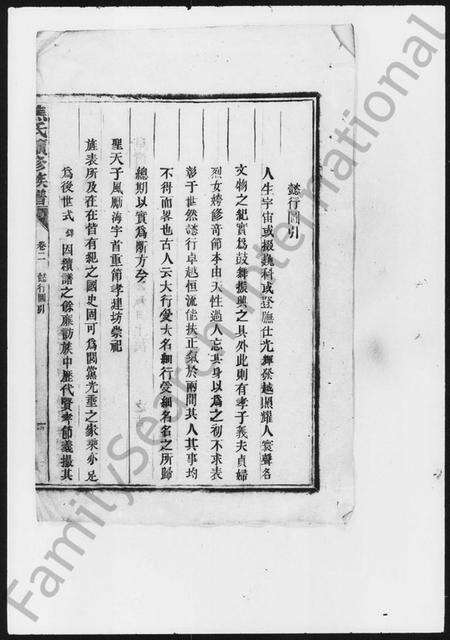 懿行圖引
人生宇宙或掇巍科或登膴仕光輝發越照耀人寰聲名
文物之紀實為鼓舞振興之具外此則有孝子義夫貞婦
烈女婞修奇節本由天性過人忘其身以為之初不求表
彰于世然懿行卓越恒流能扶正氣於兩間其人其事均
不得而畧也古人云大行受大名細行受細名名之所歸
總期以實為斷方今
聖天子風勵海宇首重節孝建坊崇祀
旌表所及在在皆有紀之國史固可為閭黨光垂之家乘亦足
為後世式 因續譜之餘廉訪族中歷代賢孝節義撮其
氏續修族譜
卷二 懿行圖引
FamilySearch International